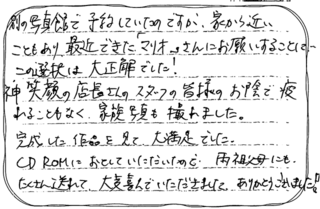 別の写真館で予約していたのですが、家から近い
こともあり最近できた「マリオ」さんにお願いすることに…
この選択は大正解でした!
神笑顔の店長さんのスタッフの皆様のお陰で疲
れることもなく、家族写真も撮れました。
完成した作品を見て大満足でした。
CD ROMにおとしていただいたので、両祖父母にも
たくさん送れて大変喜んでいただきまして、ありがとうございました!!